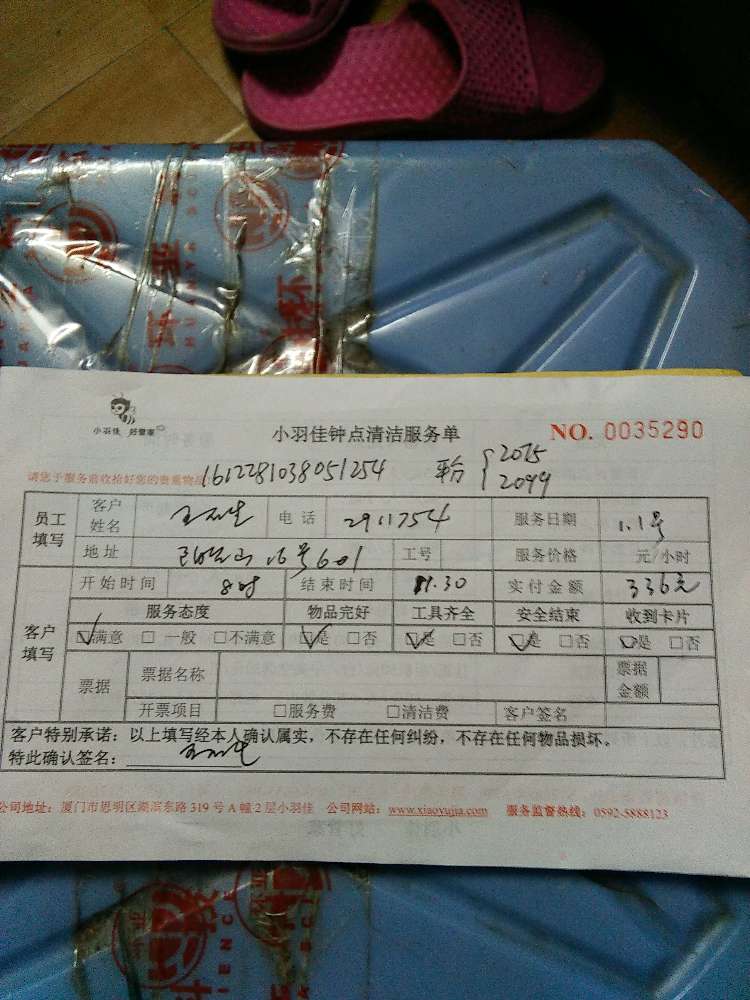 小羽佳 好管家
小羽佳钟点清洁服务单
NO. 0035290
请您于服务前收拾好您的贵重物品
1612281038051254
2075
2099
员工填写 客户姓名 电话 2911754 服务日期 1.1号
地址 16号601 工号 服务价格 元/小时
客户填写 开始时间 8时 结束时间 11.30 实付金额 336元
服务态度 物品完好 工具齐全 安全结束 收到卡片
☑满意 □一般 □不满意 ☑是 □否 ☑是 □否 ☑是 □否 ☑是 □否
票据 票据名称 票据金额
开票项目 □服务费 □清洁费 客户签名
客户特别承诺：以上填写经本人确认属实，不存在任何纠纷，不存在任何物品损坏。
特此确认签名：
公司地址：厦门市思明区湖滨东路319号A幢2层小羽佳 公司网站：www.xiaoyujia.com 服务监督热线：0592-5888123